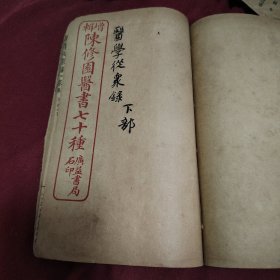 醫學從衆錄下部
增輯
陳修園醫書七十種
廣益書局
石印